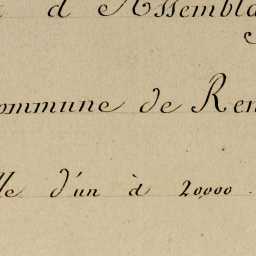 d'Assembla
ommune de Ren
lle d'un à 20,000